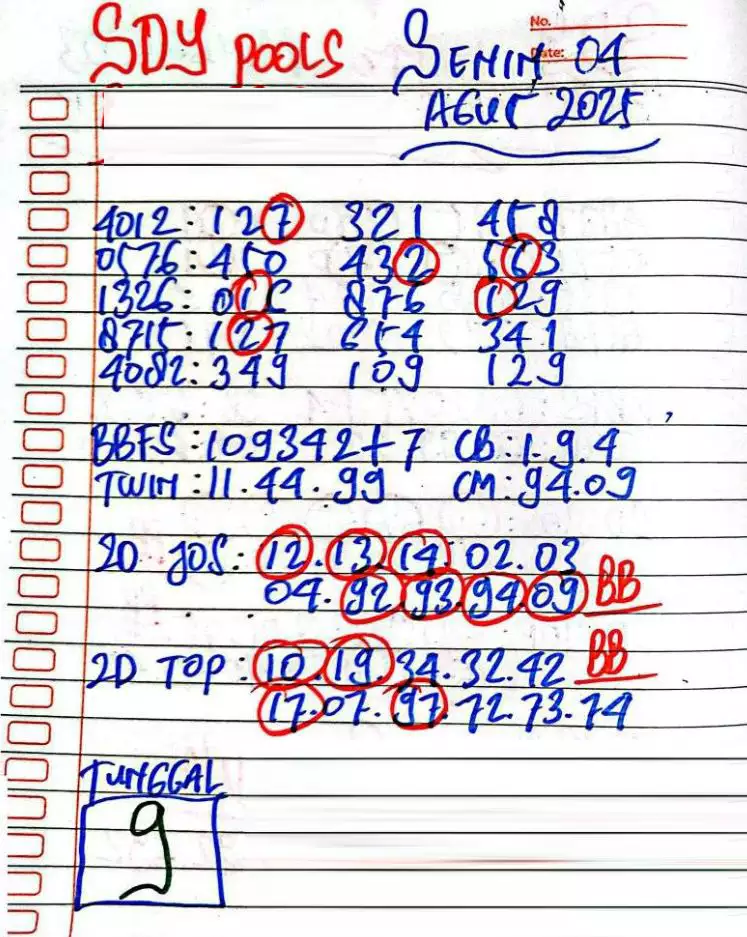 No.
SDY POOLS SENIN 04
Date:
AGUS 2025
4012: 127 321 458
0576: 450 432 563
1326: 016 876 129
8715: 127 654 341
4082: 349 109 129
BBFS: 109342+7 CB: 1.9.4
TWIN: 11.44.99 CM: 94.09
2D JOS: 12.13.14.02.03
04.92.93.94.09 BB
2D TOP: 10.19.34.32.42 BB
17.07.97.72.73.74
TUNGGAL
9